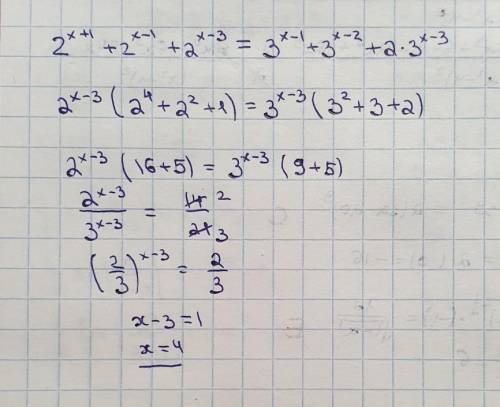 2^{x+1} + 2^{x-1} + 2^{x-3} = 3^{x-1} + 3^{x-2} + 2·3^{x-3}
2^{x-3} (2^4 + 2^2 + 1) = 3^{x-3} (3^2 + 3 + 2)
2^{x-3} (16+5) = 3^{x-3} (9+5)
2^{x-3}/3^{x-3} = 14/21 2/3
(2/3)^{x-3} = 2/3
x-3=1
x=4